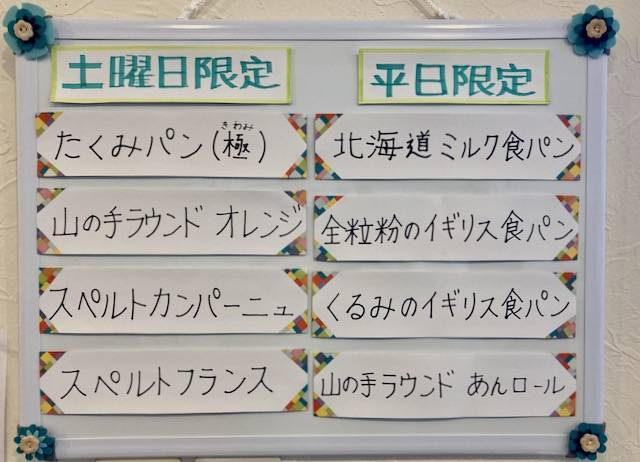 土曜日限定
たくみパン(極)
きわみ
山の手ラウンド オレンジ
スペルトカンパーニュ
スペルトフランス
平日限定
北海道ミルク食パン
全粒粉のイギリス食パン
くるみのイギリス食パン
山の手ラウンド あんロール